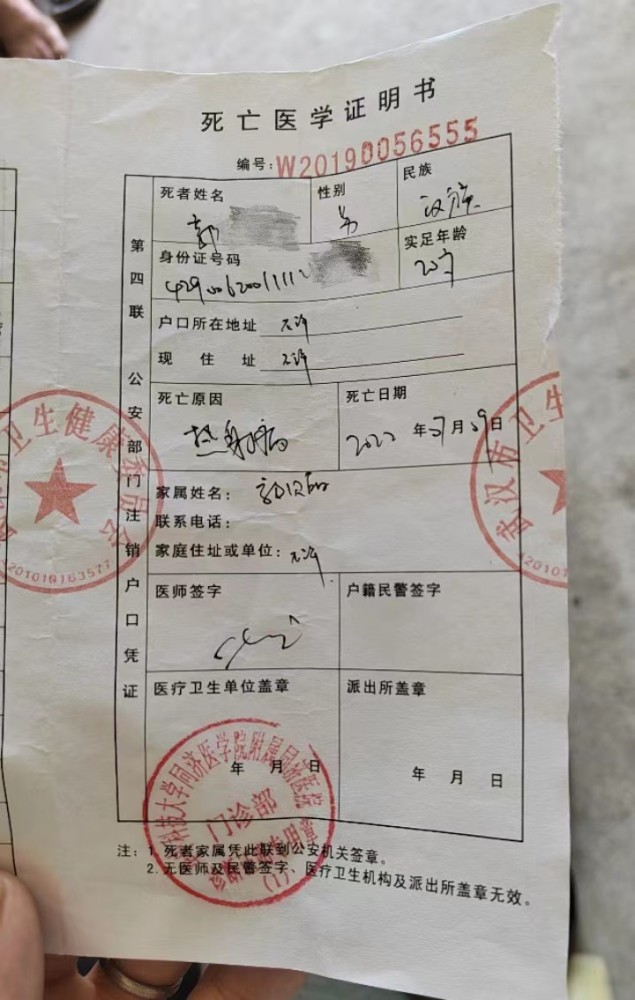 死亡医学证明书
编号:W20190056555
死者姓名
郭
性别
男
民族
汉族
身份证号码
实足年龄
20岁
户口所在地址 不详
现住址 不详
死亡原因
热射病
死亡日期
年 月 日
家属姓名:
联系电话:
家庭住址或单位:不详
医师签字
户籍民警签字
医疗卫生单位盖章
年 月 日
派出所盖章
年 月 日
第四联 公安部门注销户口凭证
注:1.死者家属凭此联到公安机关签章。
2.无医师及民警签字、医疗卫生机构及派出所盖章无效。
卫生健康委员会
武汉市卫生
科技大学同济医学院附属同济医院
门诊部
(1)